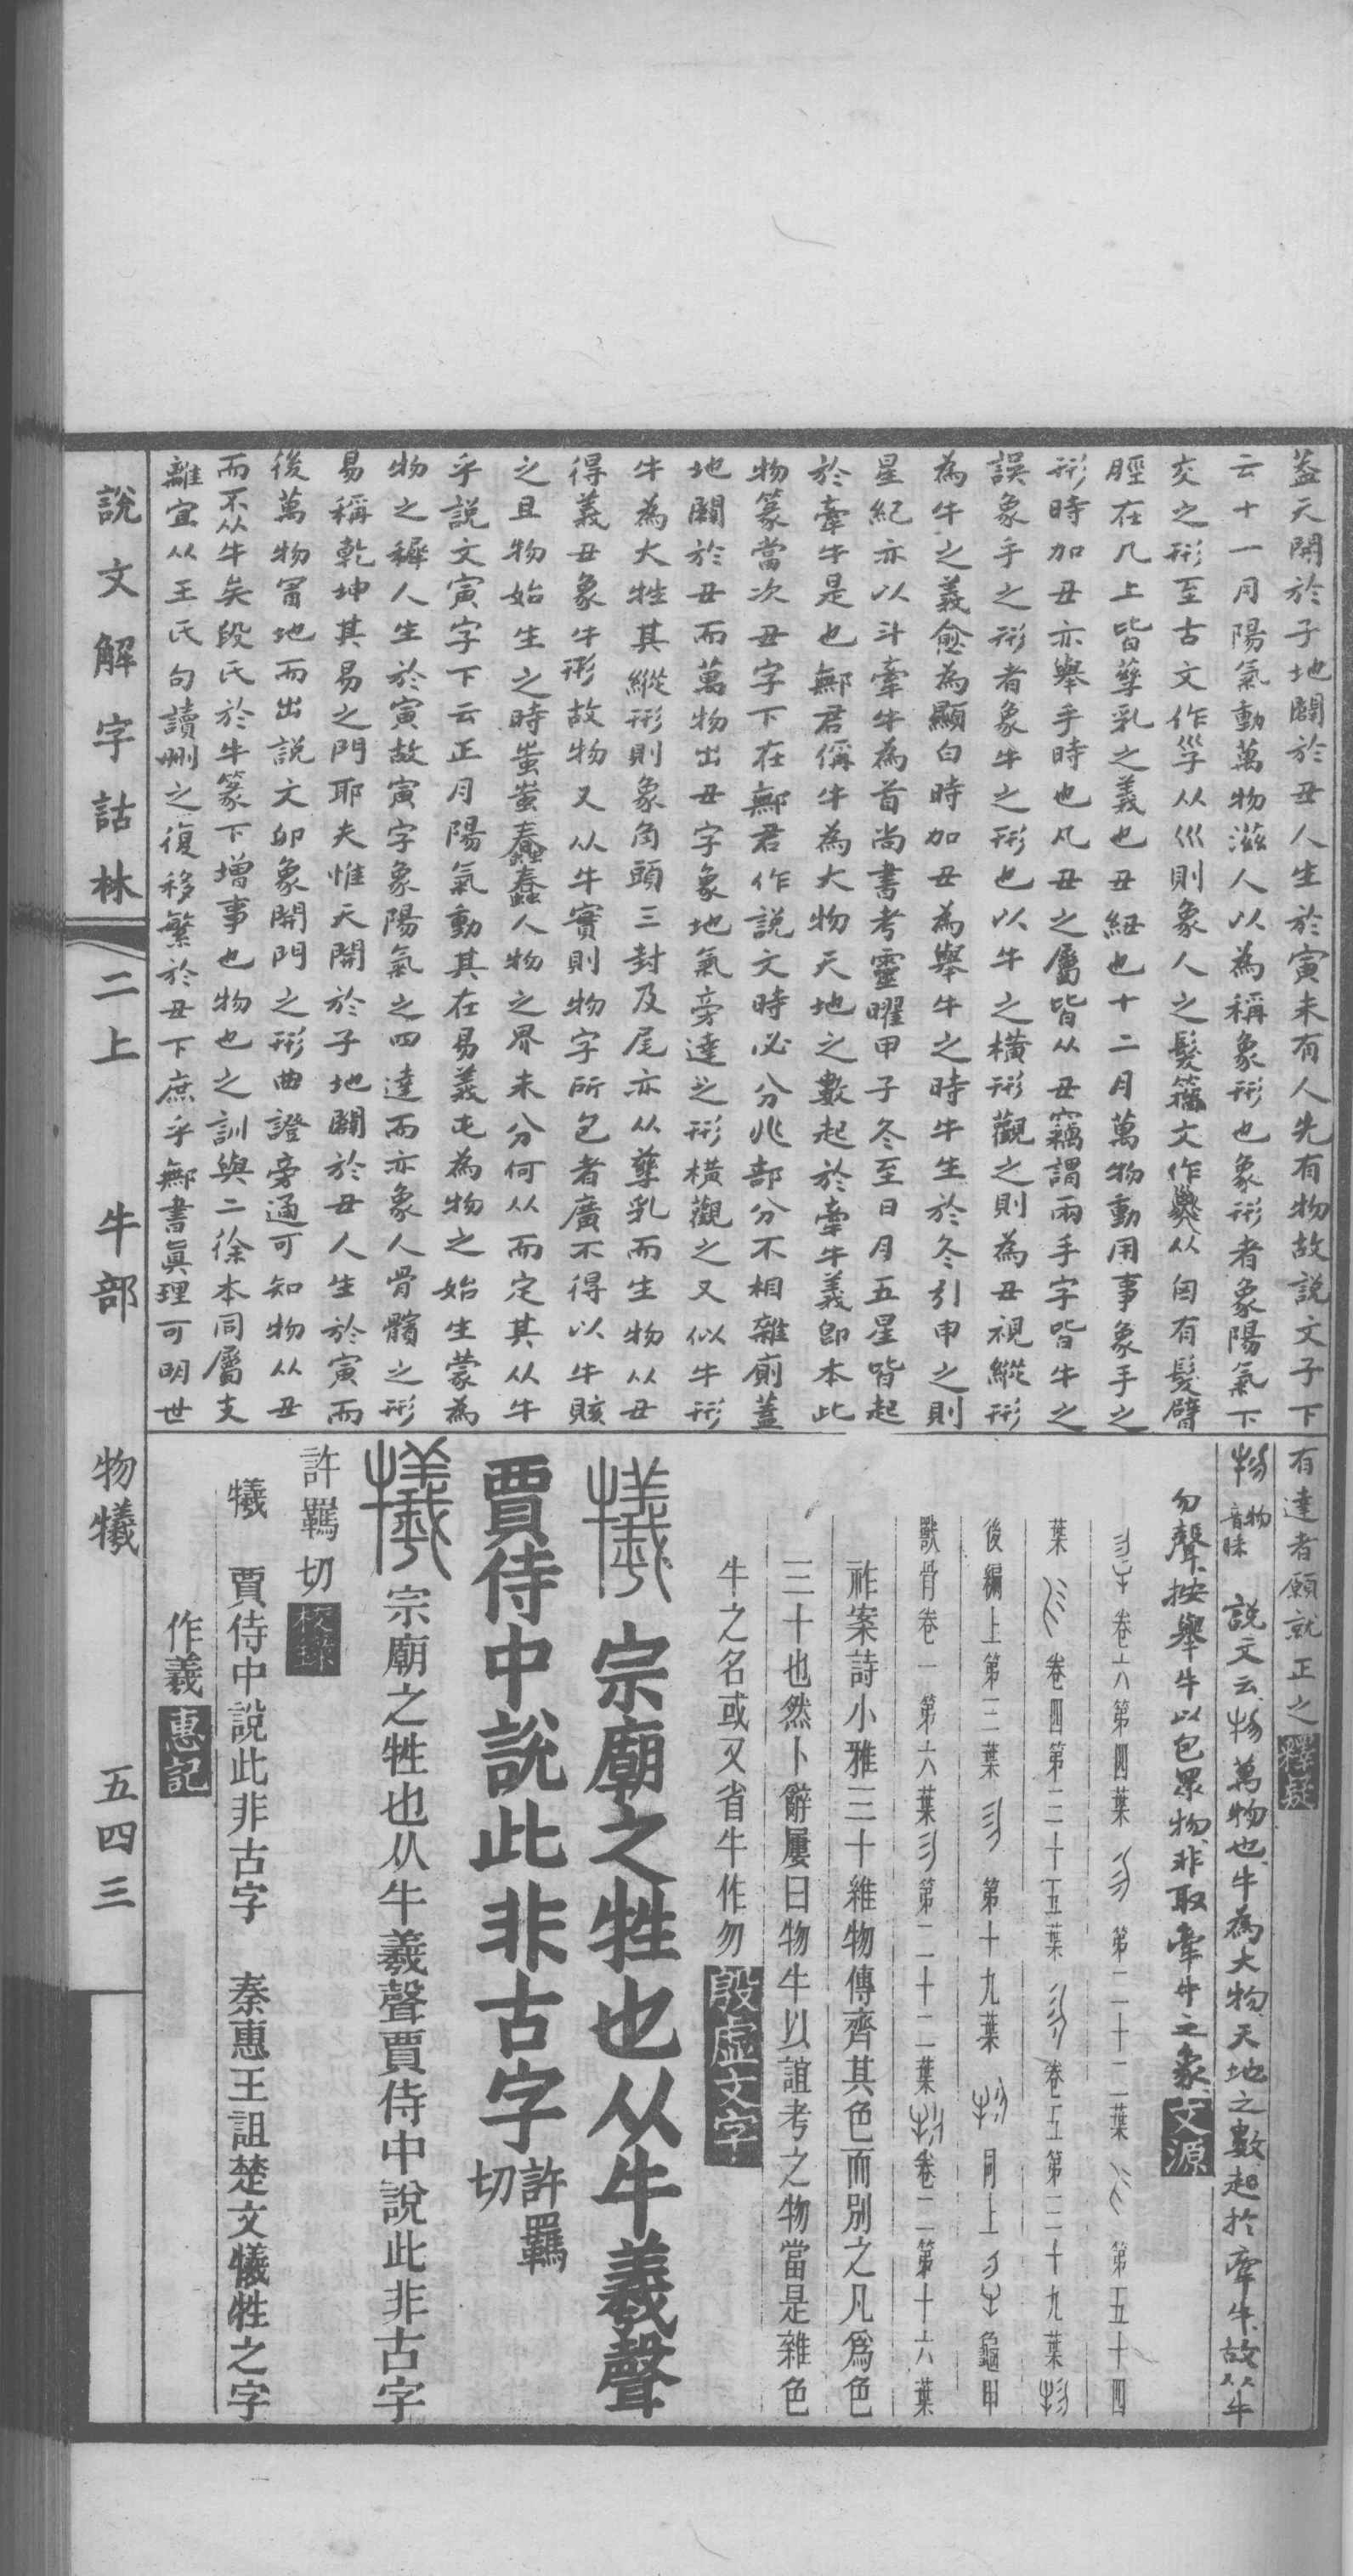 蓋天開於子地闢於丑人生於寅未有人先有物故說文子下
云十一月陽氣動萬物滋人以為稱象形也象形者象陽氣下
交之形至古文作𡿹从巛則象人之髮籀文作㜽从囟有髮臂
脛在几上皆孳乳之義也丑紐也十二月萬物動用事象手之
形時加丑亦舉手時也凡丑之屬皆从丑竊謂兩手字皆牛之
誤象手之形者象牛之形也以牛之橫形觀之則為丑視縱形
為牛之義愈為顯白時加丑為舉牛之時牛生於冬引申之則
星紀亦以斗牽牛為首尚書考靈曜甲子冬至日月五星皆起
於牽牛是也鄦君偁牛為大物天地之數起於牽牛義即本此
物篆當次丑字下在鄦君作說文時必分兆部分不相雜廁蓋
地闢於丑而萬物出丑字象地氣旁達之形橫觀之又似牛形
牛為大牲其縱形則象角頭三封及尾亦从孳乳而生物从丑
得義丑象牛形故物又从牛實則物字所包者廣不得以牛賅
之且物始生之時蚩蚩蠢蠢人物之界未分何从而定其从牛
乎說文寅字下云正月陽氣動其在易義屯為物之始生蒙為
物之穉人生於寅故寅字象陽氣之四達而亦象人骨髕之形
易稱乾坤其易之門耶夫惟天開於子地闢於丑人生於寅而
後萬物冒地而出說文卯象開門之形曲證旁通可知物从丑
而不从牛矣段氏於牛篆下增事也物也之訓與二徐本同屬支
離宜从王氏句讀刪之復移繫於丑下庶乎鄦書眞理可明世
有達者願就正之釋疑
物 音物昧 說文云物萬物也牛為大物天地之數起於牽牛故从牛
勿聲按舉牛以包眾物非取牽牛之象文源
卷六第四葉 第二十二葉 第五十四
葉 卷四第三十五葉 卷五第三十九葉
後編上第三葉 第十九葉 同上 龜甲
獸骨卷一第六葉 第二十二葉 卷二第十六葉
祚案詩小雅三十維物傳齊其色而別之凡爲色
三十也然卜辭屢曰物牛以誼考之物當是雜色
牛之名或又省牛作勿殷虛文字
犧 宗廟之牲也从牛羲聲
賈侍中說此非古字 許羈切
犧 宗廟之牲也从牛羲聲賈侍中說此非古字
許羈切校錄
犧 賈侍中說此非古字 秦惠王詛楚文犧牲之字
作羲惠記
說文解字詁林 二上 牛部 物犧 五四三